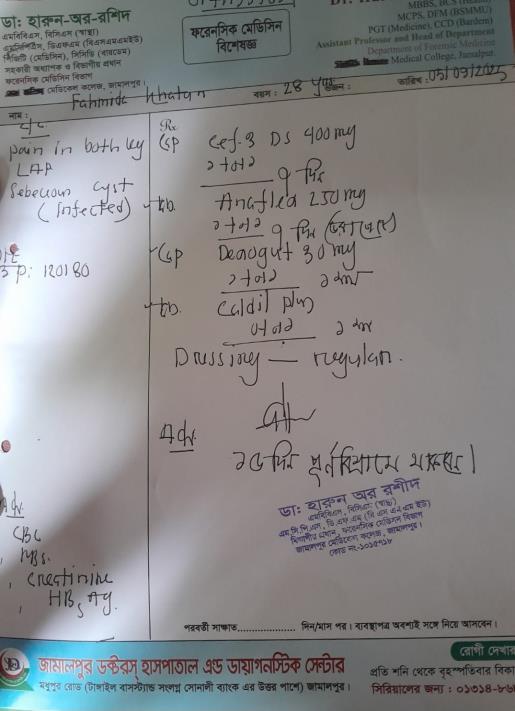 ডা: হারুন-অর-রশিদ
এমবিবিএস, বিসিএস (স্বাস্থ্য)
এমসিপিএস, ডিএফএম (বিএসএমএমইউ)
পিজিটি (মেডিসিন), সিসিডি (বারডেম)
সহকারী অধ্যাপক ও বিভাগীয় প্রধান
ফরেনসিক মেডিসিন বিভাগ
মেডিকেল কলেজ, জামালপুর।
ফরেনসিক মেডিসিন
বিশেষজ্ঞ
MBBS, BCS (Health)
MCPS, DFM (BSMMU)
PGT (Medicine), CCD (Bardem)
Assistant Professor and Head of Department
Department of Forensic Medicine
Medical College, Jamalpur.
নাম : Fahmida Khatun বয়স : 28 yrs তারিখ : 05/03/2025
C/C
pain in both leg
LAP
Sebecious cyst
(Infected)
O/E
BP: 120/80
Adv.
CBC
RBS.
Creatinine
HBsAg.
Rx
Cap Cef-3 DS 400mg
১+০+১
৭ দিন
Tab. Anaflex 250mg
১+০+১ ৭ দিন (ভরাপেটে)
Cap 30mg
১+০+১ ১ মাস
Tab. Caldil plus
০+০+১ ১ মাস
Dressing — regular.
Adv.
১৫ দিন পূর্নবিশ্রামে থাকবেন।
ডা: হারুন অর রশীদ
এমবিবিএস, বিসিএস (স্বাস্থ্য)
এম.সি.পি.এস, ডি.এফ.এম (বি এস এম এম ইউ)
বিভাগীয় প্রধান, ফরেনসিক মেডিসিন বিভাগ
জামালপুর মেডিকেল কলেজ, জামালপুর।
কোড নং-১০১৫৭১৮
পরবর্তী সাক্ষাত.................... দিন/মাস পর। ব্যবস্থাপত্র অবশ্যই সঙ্গে নিয়ে আসবেন।
জামালপুর ডক্টরস্ হাসপাতাল এন্ড ডায়াগনস্টিক সেন্টার
মধুপুর রোড (টাঙ্গাইল বাসস্ট্যান্ড সংলগ্ন সোনালী ব্যাংক এর উত্তর পাশে) জামালপুর।
রোগী দেখার
প্রতি শনি থেকে বৃহস্পতিবার বিকা
সিরিয়ালের জন্য : ০১৩১৪-৮৬